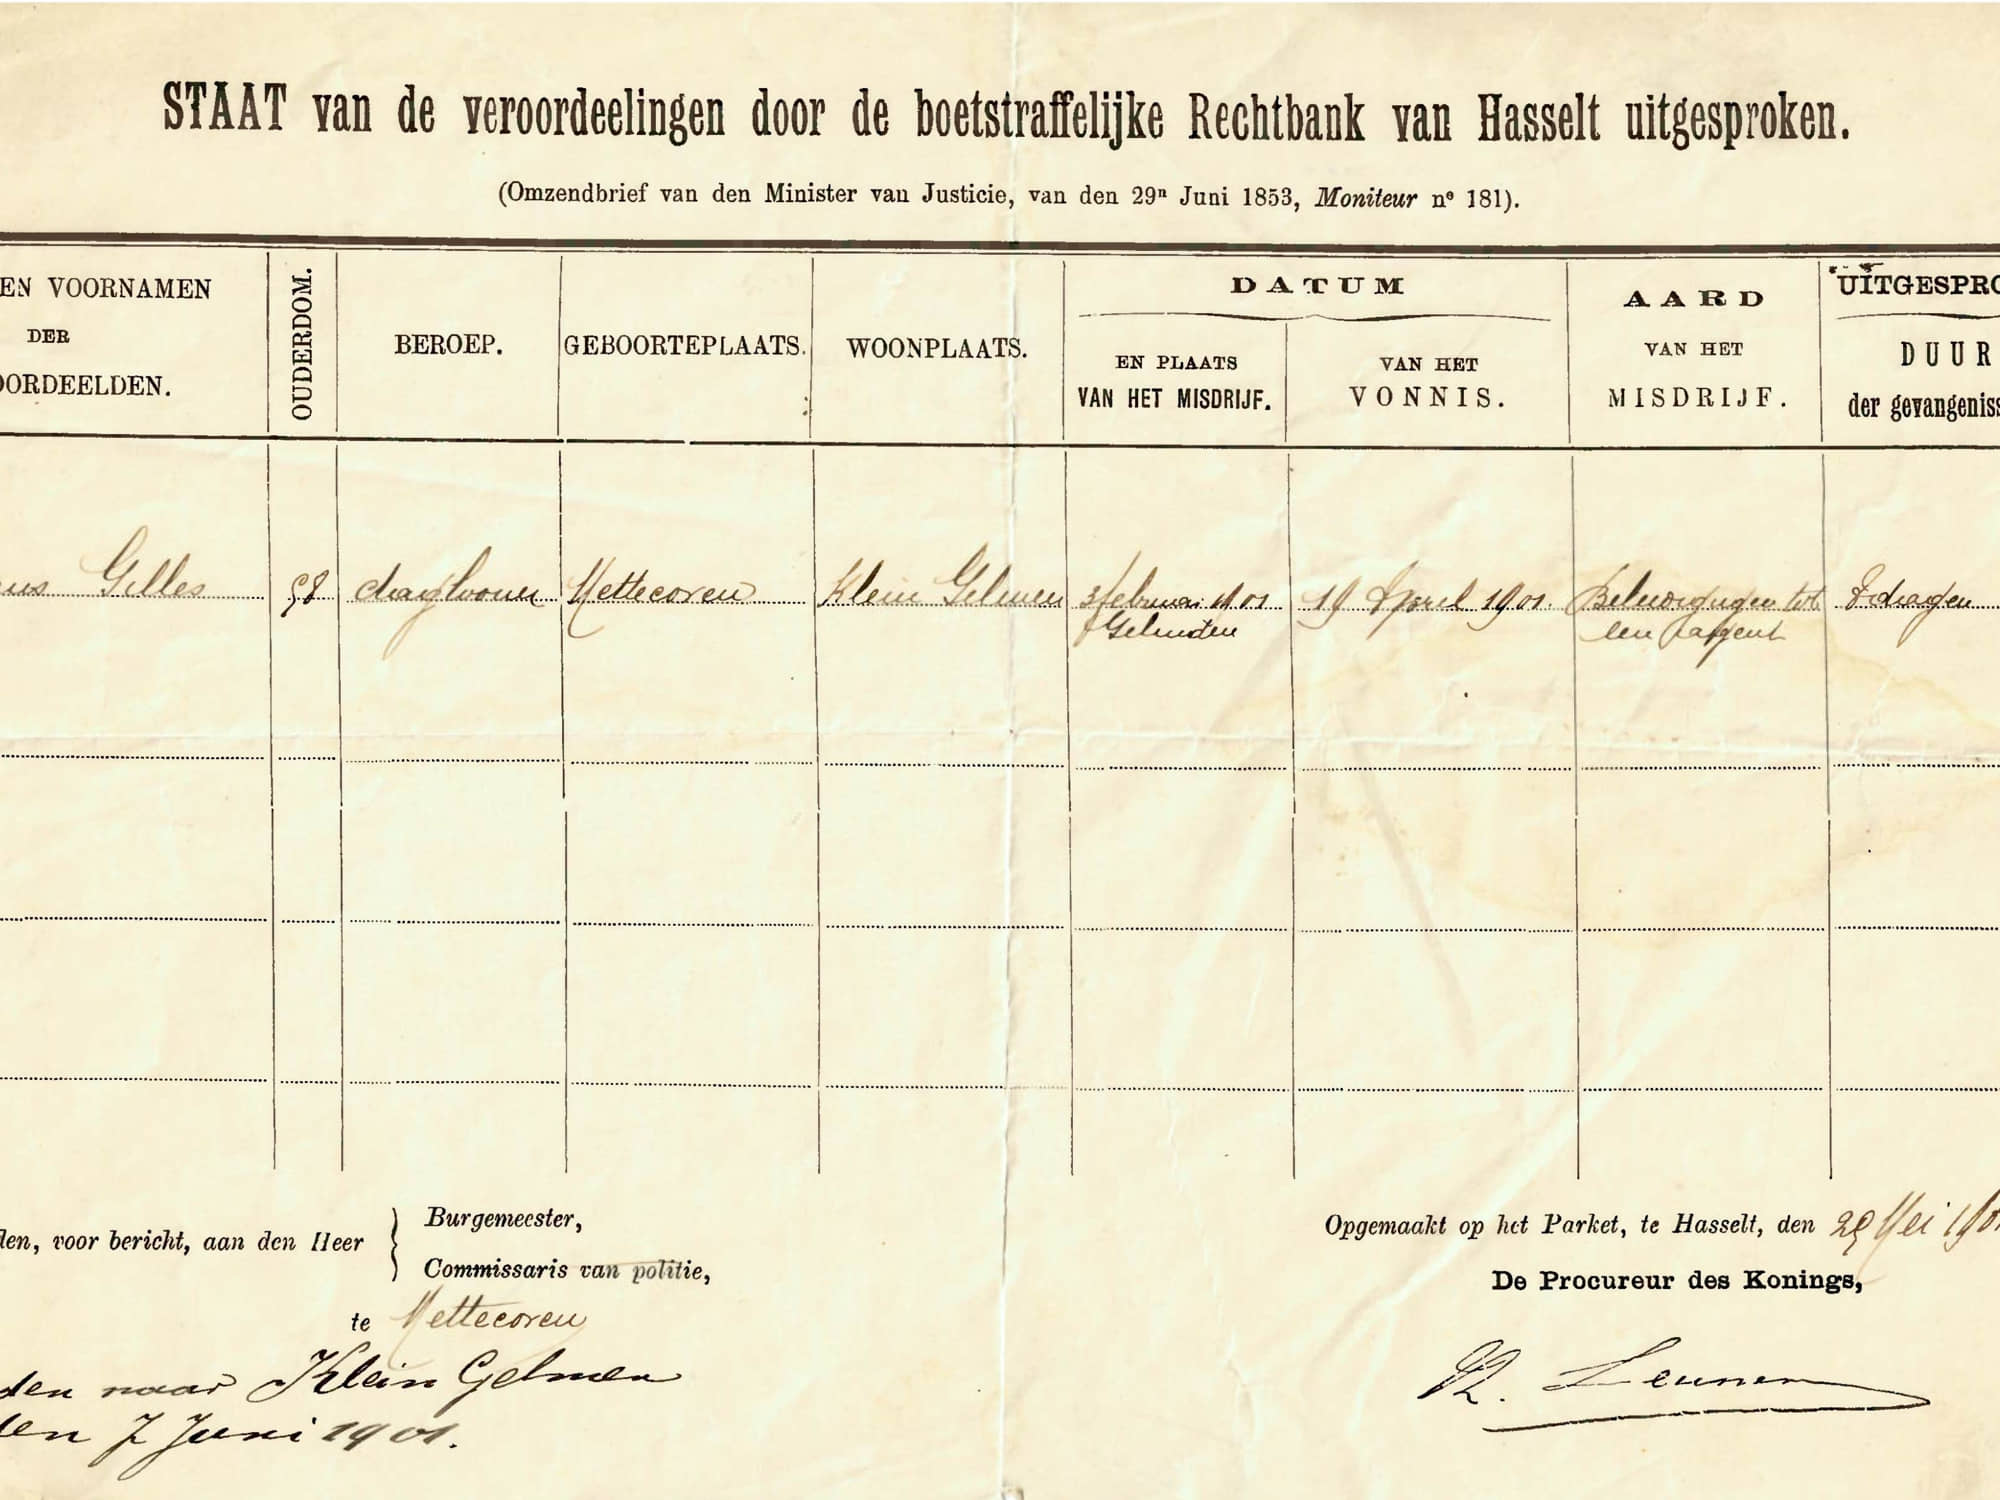 STAAT van de veroordeelingen door de boetstraffelijke Rechtbank van Hasselt uitgesproken.
(Omzendbrief van den Minister van Justicie, van den 29n Juni 1853, Moniteur no 181).
EN VOORNAMEN
DER
OORDEELDEN.
OUDERDOM.
BEROEP.
GEBOORTEPLAATS.
WOONPLAATS.
DATUM
EN PLAATS
VAN HET MISDRIJF.
VAN HET
VONNIS.
AARD
VAN HET
MISDRIJF.
UITGESPRO
DUUR
der gevangeniss
us Gilles 58 daglooner Mettecoven Klein Gelmen 3 februari 1901 19 April 1901. tot 8 dagen
een
den, voor bericht, aan den Heer
Burgemeester,
Commissaris van politie,
te Mettecoven
den naar Klein Gelmen
den 7 Juni 1901.
Opgemaakt op het Parket, te Hasselt, den 29 Mei 190
De Procureur des Konings,